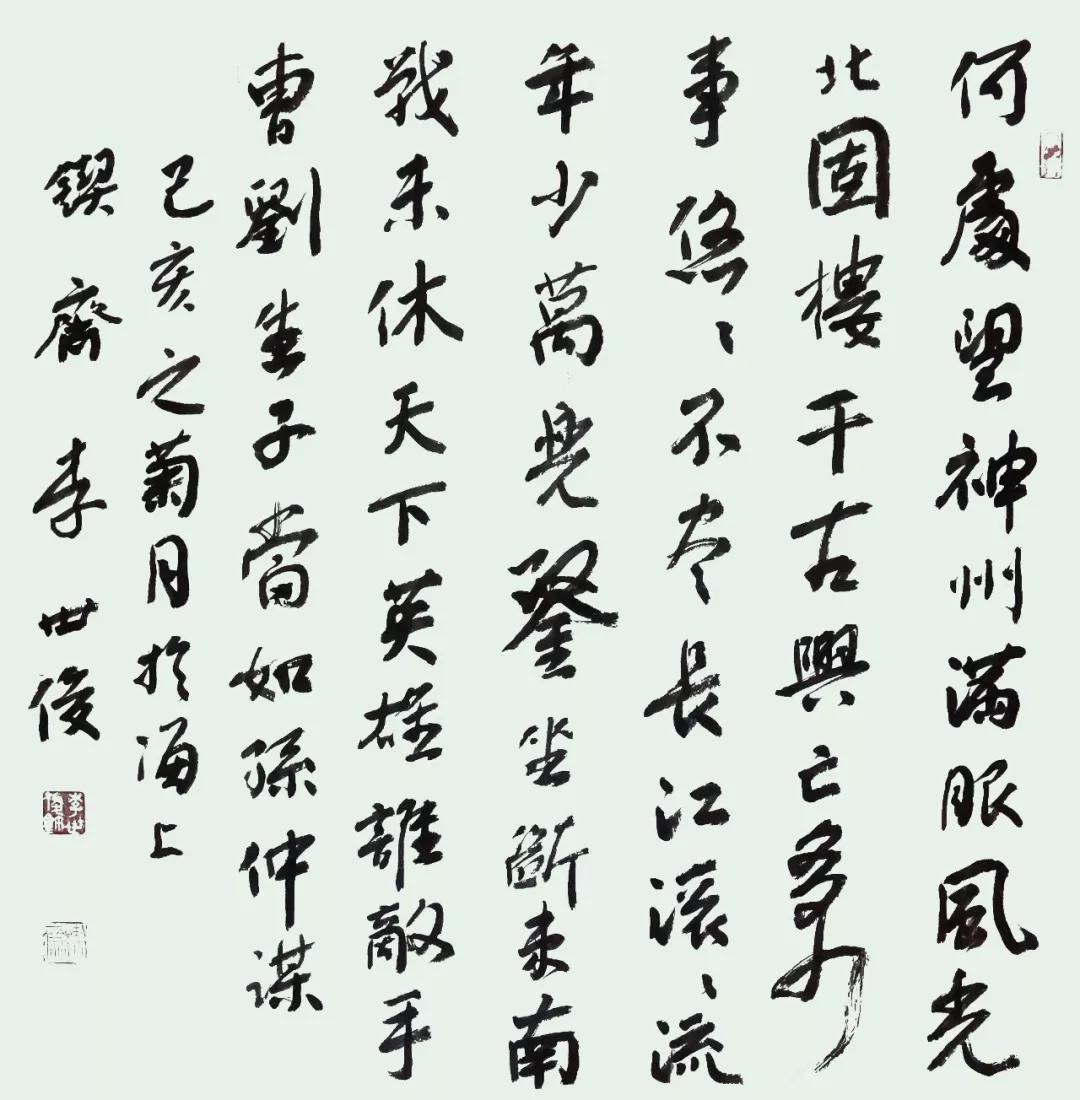 何處望神州滿眼風光
北固樓千古興亡多少
事悠〻不尽長江滾〻流
年少萬兜鍪坐斷東南
戰未休天下英雄誰敵手
曹劉生子當如孫仲謀
己亥之菊月於海上
鍥齋李世俊